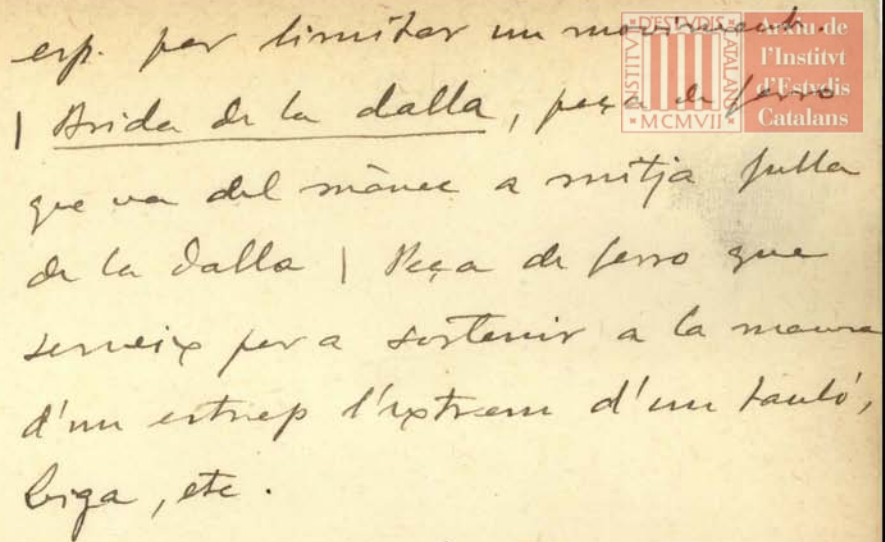 esp. per limitar un moviment.
| Brida de la dalla, peça de ferro
que va del mànec a mitja fulla
de la dalla | Peça de ferro que
serveix per a sostenir a la manera
d'un estrep l'extrem d'un tauló,
biga, etc.
INSTITVT D'ESTVDIS CATALANS
MCMVII
Arxiu de
l'Institvt
d'Estvdis
Catalans